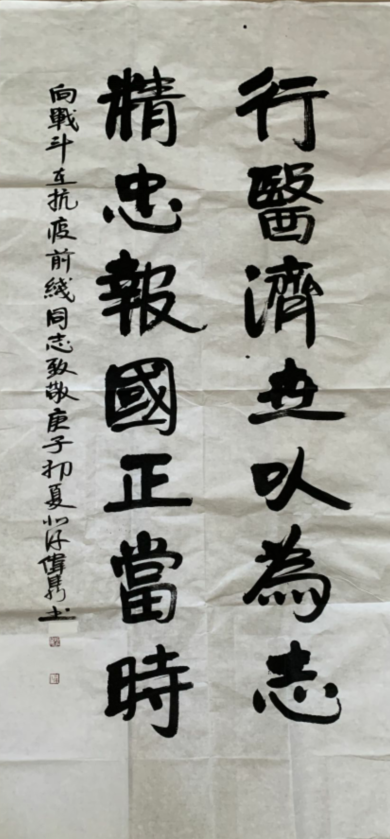 行醫濟世以為志
精忠報國正當時
向戰斗在抗疫前綫同志致敬庚子初夏